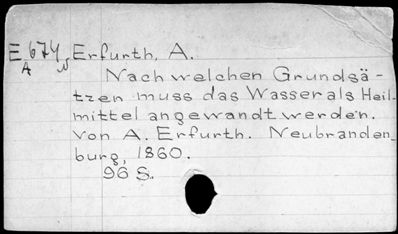 E 674 Erfurth, A.
A
Nach welchen Grundsä-
tzen muss das Wasser als Heil-
mittel angewandt werden.
Von A. Erfurth. Neubranden
burg, 1860.
96 S.